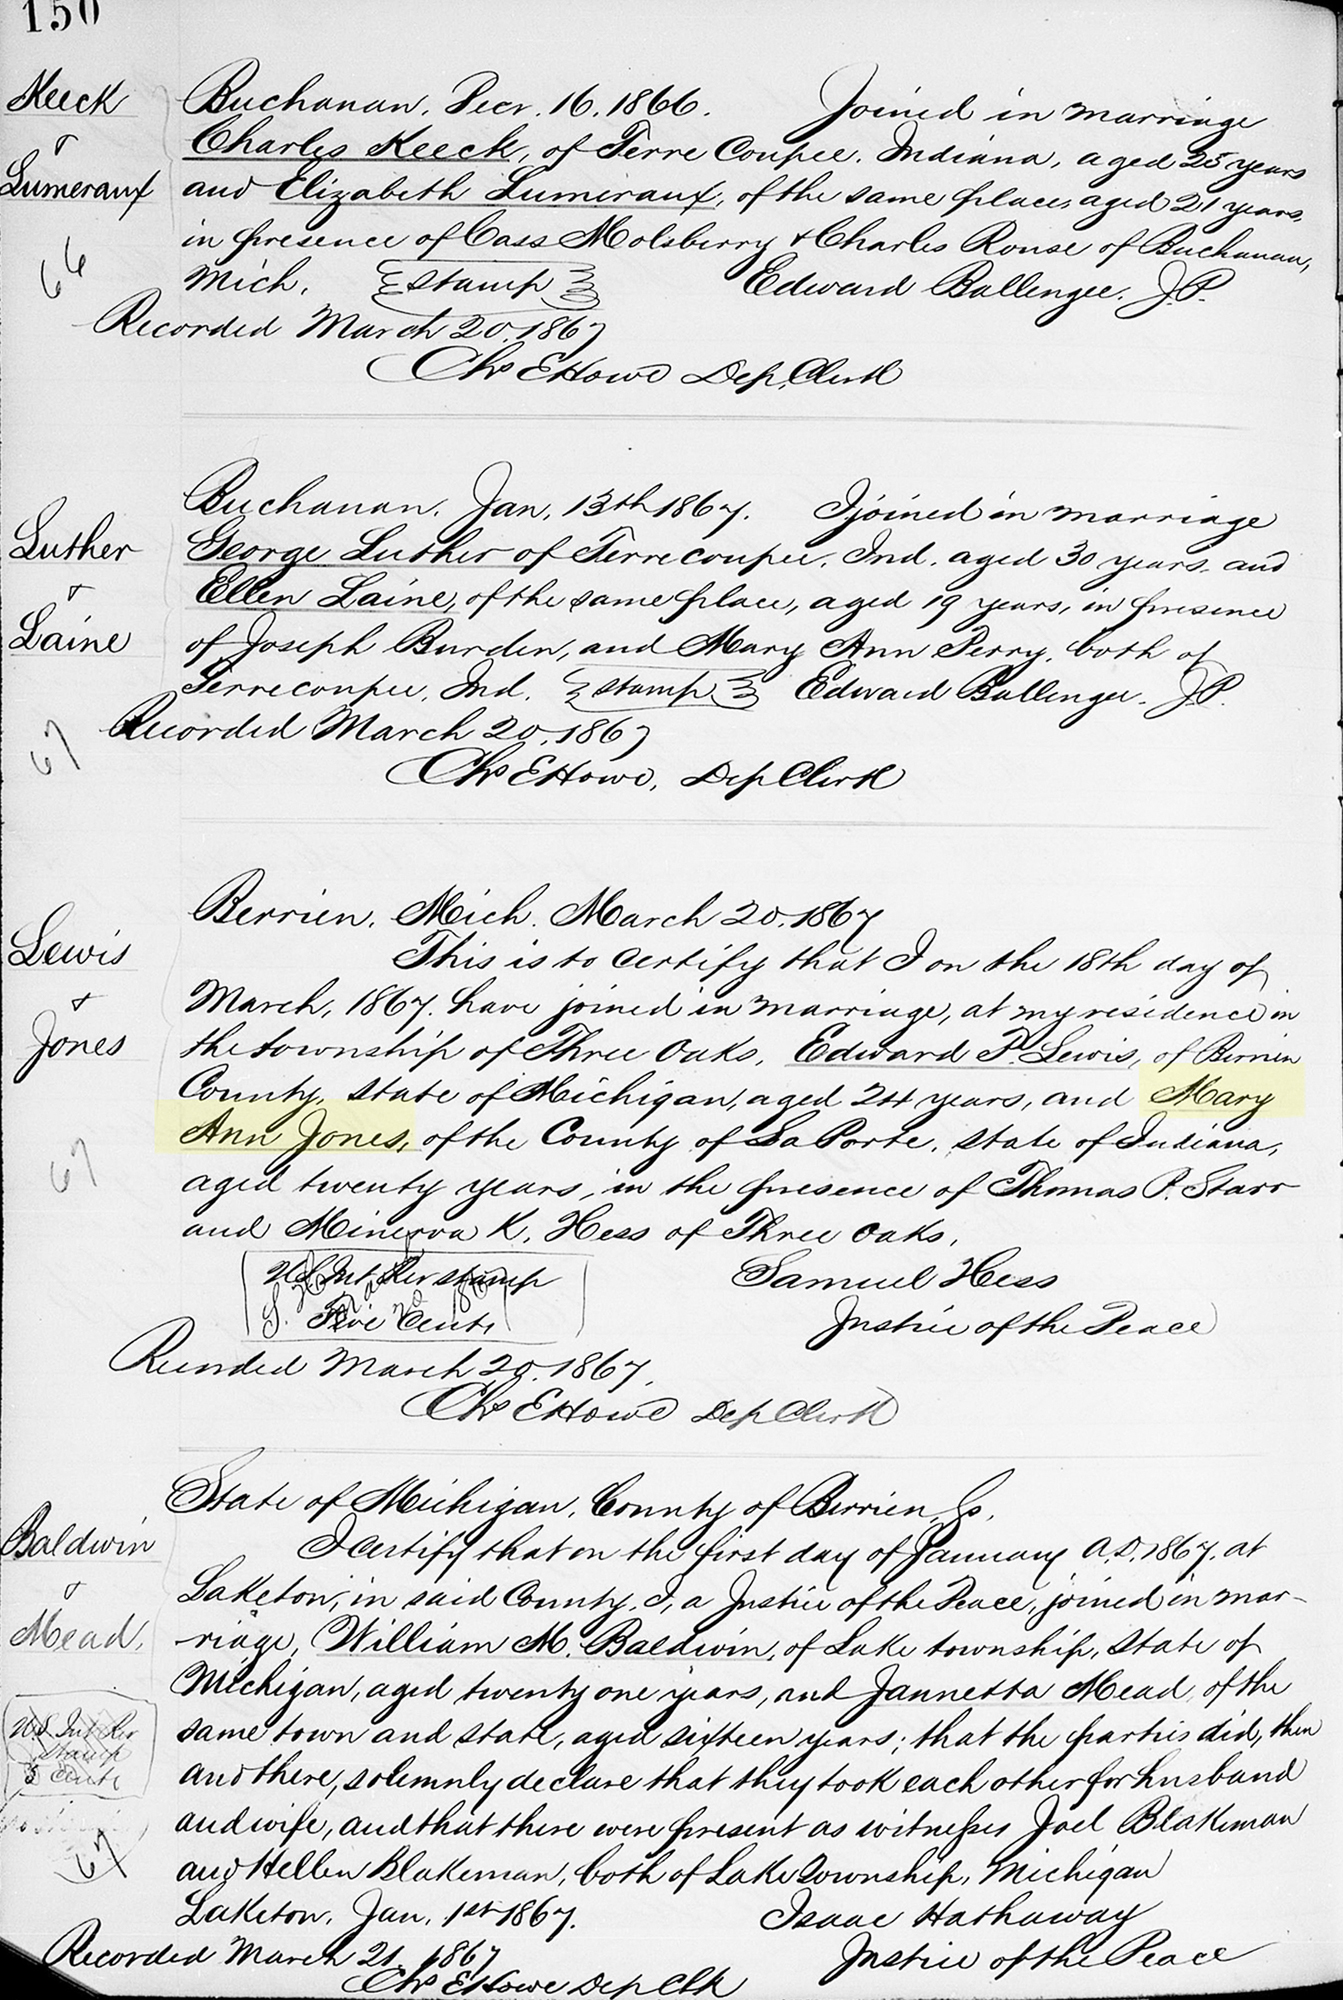 150
Keeck
&
Lumeraux
66
Buchanan, Decr. 16. 1866. Joined in marriage
Charles Keeck, of Terre Coupee, Indiana, aged 25 years
and Elizabeth Lumeraux, of the same place, aged 21 years,
in presence of Cass Molsberry & Charles Rouse of Buchanan,
Mich. stamp Edward Ballengee. J.P.
Recorded March 20. 1867
Chs E Howe Dep. Clerk
Luther
&
Laine
67
Buchanan. Jan. 13th 1867. I joined in marriage
George Luther of Terrecoupee, Ind. aged 30 years. and
Ellen Laine, of the same place, aged 19 years, in presence
of Joseph Burden, and Mary Ann Perry, both of
Terrecoupee, Ind. stamp Edward Ballengee. J.P.
Recorded March 20. 1867
Chs E Howe, Dep Clerk
Lewis
&
Jones
67
Berrien, Mich. March 20. 1867
This is to certify that I on the 18th day of
March, 1867. have joined in marriage, at my residence in
the township of Three Oaks, Edward P. Lewis, of Berrien
County, state of Michigan, aged 24 years, and Mary
Ann Jones, of the County of La Porte, state of Indiana,
aged twenty years, in the presence of Thomas P. Starr
and Minerva K. Hess of Three Oaks.
U.S. Int. Rev stamp Samuel Hess
Five Cents Justice of the Peace
Recorded March 20. 1867.
Chs E Howe Dep Clerk
Baldwin
&
Mead.
U.S. Int Rev
stamp
5 Cents
67
State of Michigan, County of Berrien, Ss.
I certify that on the first day of January A.D. 1867. at
Laketon, in said County, I, a Justice of the Peace, joined in mar-
-riage, William M. Baldwin, of Lake township, state of
Michigan, aged twenty one years, and Jannetta Mead, of the
same town and state, aged sixteen years; that the parties did, then
and there, solemnly declare that they took each other for husband
and wife, and that there were present as witnesses Joel Blakeman
and Hellen Blakeman, both of Lake Township, Michigan
Laketon, Jan. 1st 1867. Isaac Hathaway
Recorded March 21. 1867 Justice of the Peace
Chs E Howe Dep Clk